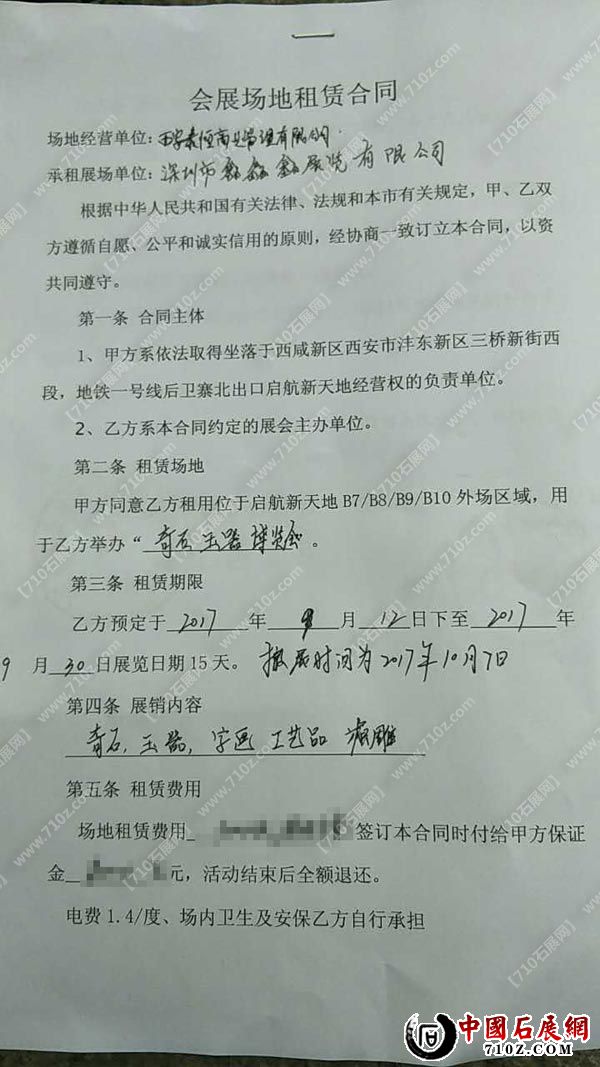 会展场地租赁合同
场地经营单位：西安泰恒商业管理有限公司
承租展场单位：深圳市鑫鑫鑫展览有限公司
根据中华人民共和国有关法律、法规和本市有关规定，甲、乙双
方遵循自愿、公平和诚实信用的原则，经协商一致订立本合同，以资
共同遵守。
第一条 合同主体
1、甲方系依法取得坐落于西咸新区西安市沣东新区三桥新街西
段，地铁一号线后卫寨北出口启航新天地经营权的负责单位。
2、乙方系本合同约定的展会主办单位。
第二条 租赁场地
甲方同意乙方租用位于启航新天地 B7/B8/B9/B10 外场区域，用
于乙方举办“ 奇石 玉器 博览会 。
第三条 租赁期限
乙方预定于 2017 年 9 月 12 日下至 2017 年
9 月 30 日展览日期 15 天。撤展时间为2017年10月7日
第四条 展销内容
奇石，玉器，字画 工艺品 根雕
第五条 租赁费用
场地租赁费用 签订本合同时付给甲方保证
金 元，活动结束后全额退还。
电费 1.4/度、场内卫生及安保乙方自行承担
【710石展网】
www.710z.com
中國石展網
710Z.COM